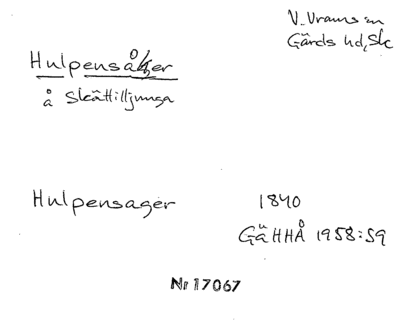 V. Vrams sn
Gärds hd, Sk
Hulpensåker
å Skättilljunga
Hulpensager 1840
GäHHÅ 1958:59
Nr 17067